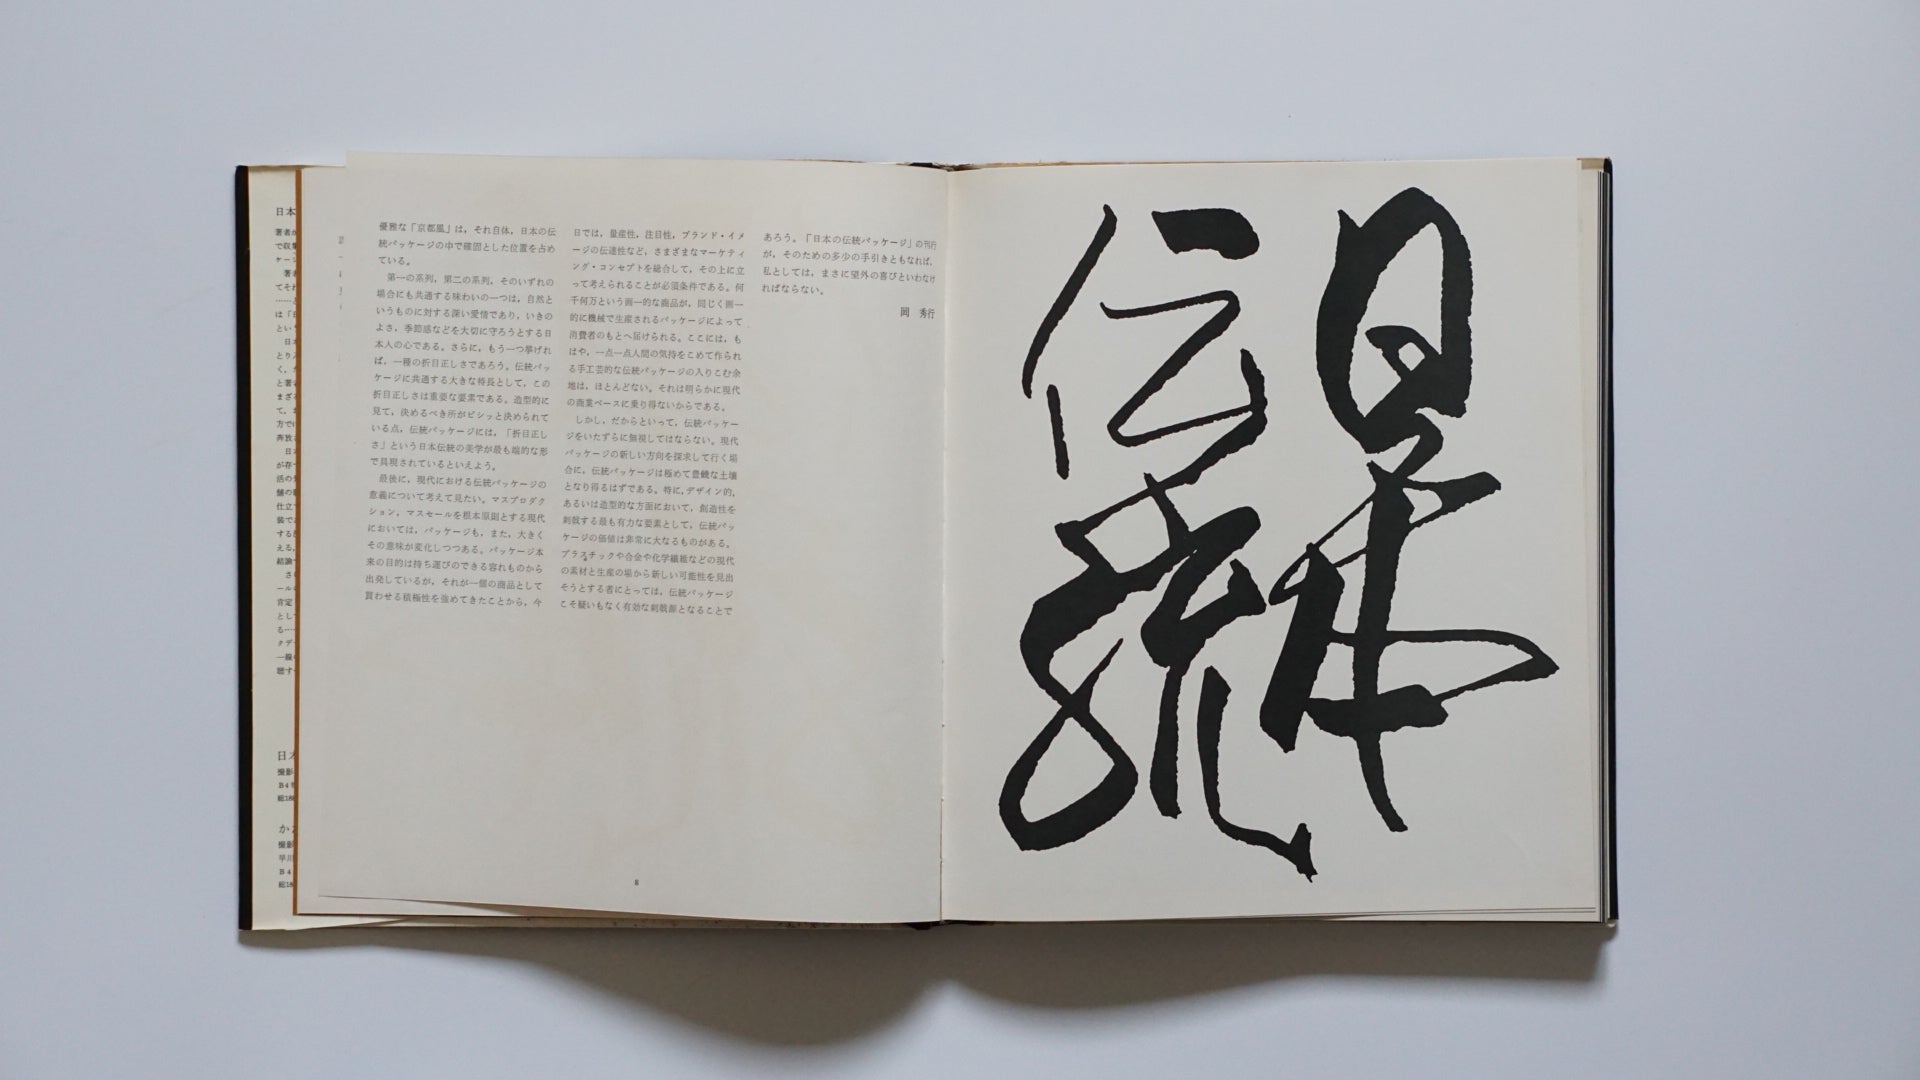 優雅な「京都風」は，それ自体，日本の伝
統パッケージの中で確固とした位置を占め
ている。
第一の系列，第二の系列，そのいずれの
場合にも共通する味わいの一つは，自然と
いうものに対する深い愛情であり，いきの
よさ，季節感などを大切に守ろうとする日
本人の心である。さらに，もう一つ挙げれ
ば，一種の折目正しさであろう。伝統パッ
ケージに共通する大きな特長として，この
折目正しさは重要な要素である。造型的に
見て，決めるべき所がビシッと決められて
いる点，伝統パッケージには，「折目正し
さ」という日本伝統の美学が最も端的な形
で具現されているといえよう。
最後に，現代における伝統パッケージの
意義について考えて見たい。マスプロダク
ション，マスセールを根本原則とする現代
においては，パッケージも，また，大きく
その意味が変化しつつある。パッケージ本
来の目的は持ち運びのできる容れものから
出発しているが，それが一個の商品として
買わせる積極性を強めてきたことから，今
日では，量産性，注目性，ブランド・イメ
ージの伝達性など，さまざまなマーケティ
ング・コンセプトを総合して，その上に立
って考えられることが必須条件である。何
千何万という画一的な商品が，同じく画一
的に機械で生産されるパッケージによって
消費者のもとへ届けられる。ここには，も
はや，一点一点人間の気持をこめて作られ
る手工芸的な伝統パッケージの入りこむ余
地は，ほとんどない。それは明らかに現代
の商業ベースに乗り得ないからである。
しかし，だからといって，伝統パッケー
ジをいたずらに無視してはならない。現代
パッケージの新しい方向を探求して行く場
合に，伝統パッケージは極めて豊饒な土壌
となり得るはずである。特に，デザイン的，
あるいは造型的な方面において，創造性を
刺戟する最も有力な要素として，伝統パッ
ケージの価値は非常に大なるものがある。
プラスチックや合金や化学繊維などの現代
の素材と生産の場から新しい可能性を見出
そうとする者にとっては，伝統パッケージ
こそ疑いもなく有効な刺戟源となることで
あろう。「日本の伝統パッケージ」の刊行
が，そのための多少の手引きともなれば，
私としては，まさに望外の喜びといわなけ
ればならない。
岡　秀行
8
日本
伝統